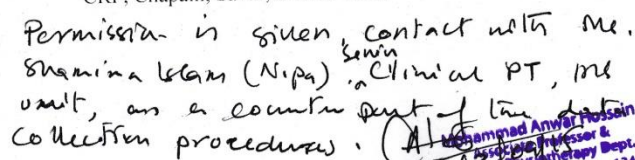 CRP, Chapain,
Permission is given, contact with Ms.
Shamima Islam (Nipa), Senior Clinical PT, MS
unit, as a counter part of the data
collection procedures.
Mohammad Anwar Hossain
Associate Professor &
therapy Dept.